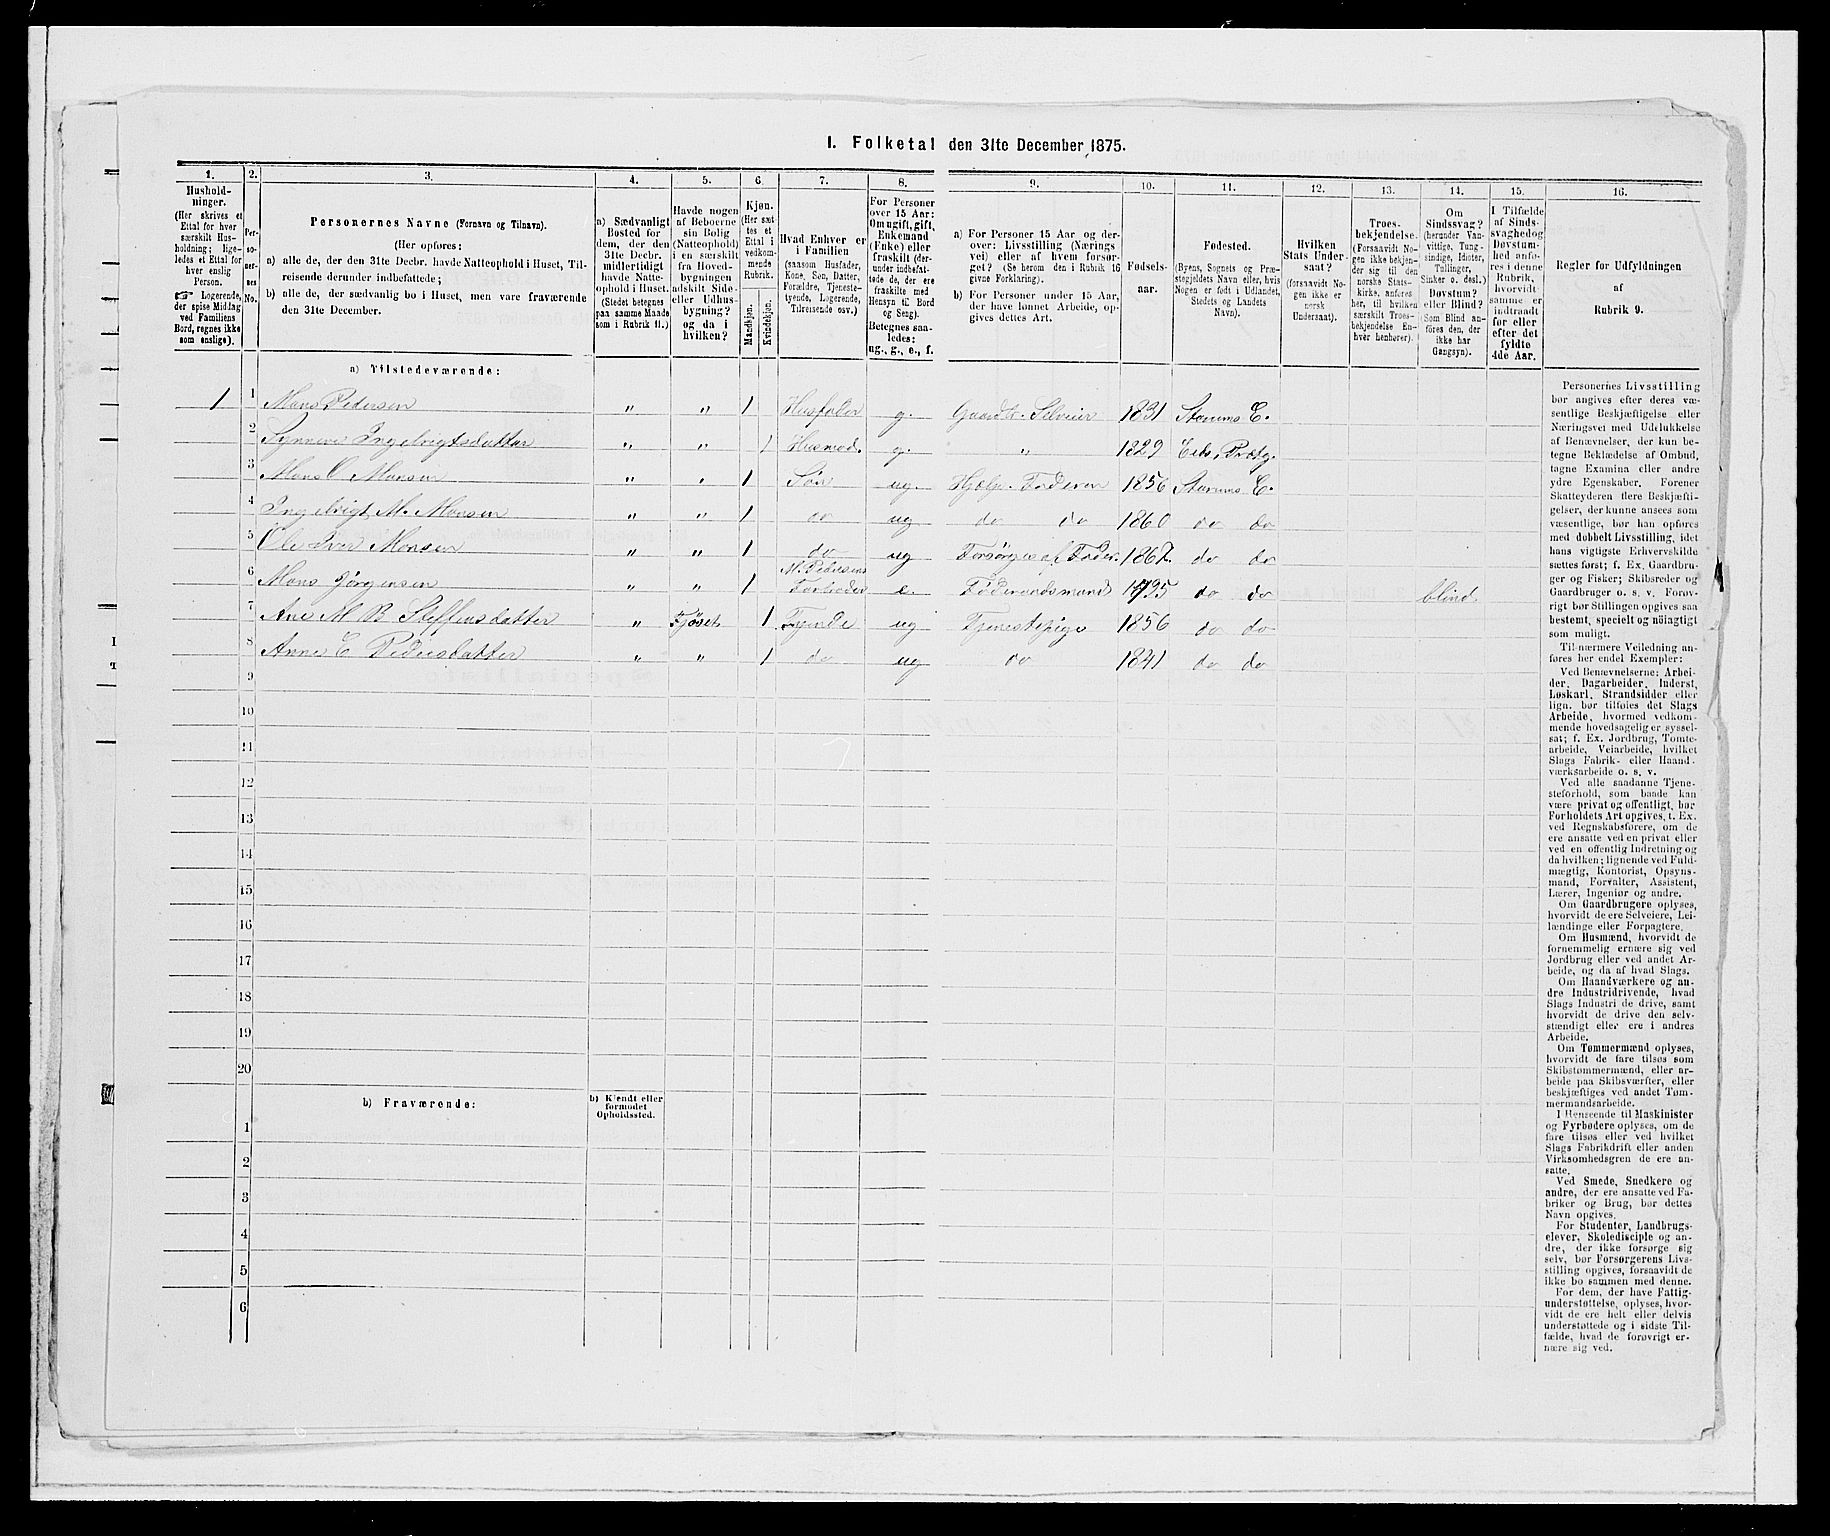 I. Folketal den 31te December 1875.
1. 2. 3. 4. 5. 6. 7. 8. 9. 10. 11. 12. 13. 14. 15. 16.
Hushold-
ninger.
(Her skrives et
Ettal for hver
særskilt Hus-
holdning; lige-
ledes et Ettal for
hver enslig
Person.
☞ Logerende,
der spise Middag
ved Familiens
Bord, regnes ikke
som enslige).
Per-
so-
ner-
nes
No.
Personernes Navne (Fornavn og Tilnavn).
(Her opføres:
a) alle de, der den 31te Decbr. havde Natteophold i Huset, Til-
reisende derunder indbefattede;
b) alle de, der sædvanlig bo i Huset, men vare fraværende
den 31te December.
a) Sædvanligt
Bosted for
dem, der den
31te Decbr.
midlertidigt
havde Natte-
ophold i Huset.
(Stedet betegnes
paa samme Maade
som i Rubrik 11.)
Havde nogen
af Beboerne
sin Bolig
(Natteophold)
i en særskilt
fra Hoved-
bygningen
adskilt Side-
eller Udhus-
bygning?
og da i
hvilken?
Kjøn.
(Her sæt-
tes et
Ettal i
vedkom-
mende
Rubrik.
Mandkjøn.
Kvindekjøn.
Hvad Enhver er
i Familien
(saasom Husfader,
Kone, Søn, Datter,
Forældre, Tjeneste-
tyende, Logerende,
Tilreisende osv.)
For Personer
over 15 Aar:
Om ugift, gift,
Enkemand
(Enke) eller
fraskilt (der-
under indbefat-
tede de, der ere
fraskilte med
Hensyn til Bord
og Seng).
Betegnes saa-
ledes:
ug., g., e., f.
a) For Personer 15 Aar og der-
over: Livsstilling (Nærings
vei) eller af hvem forsør-
get? (Se herom den i Rubrik 16
givne Forklaring).
b) For Personer under 15 Aar,
der have lønnet Arbeide, op-
gives dettes Art.
Fødsels-
aar.
Fødested.
(Byens, Sognets og Præ-
stegjeldets Navn eller, hvis
Nogen er født i Udlandet,
Stedets og Landets
Navn).
Hvilken
Stats Under-
saat?
(forsaavidt No-
gen ikke er
norsk
Undersaat).
Troes-
bekjendelse.
(Forsaavidt No-
gen ikke bekjen-
der sig til den
norske Stats-
kirke, anføres
her, til hvilken
særskilt Troes-
bekjendelse En-
hver henhører).
Om
Sindssvag?
(herunder Van-
vittige, Tung-
sindige, Idioter,
Tullinger,
Sinker o. desl.)
Døvstum?
eller Blind?
(Som Blind an-
føres den, der
ikke har
Gangsyn).
I Tilfælde
af Sinds-
svaghed og
Døvstum-
hed anfø-
res i denne
Rubrik,
hvorvidt
samme er
indtraadt
før eller
efter det
fyldte
4de Aar.
Regler for Udfyldningen
af
Rubrik 9.
a) Tilstedeværende:
1 1 Mons Pedersen " " 1 Husfader g. Gaardb. Selveier 1831 Stamns C.
2 Synneve Ingebrigtsdatter " " 1 Husmod. g. " 1829 Eids Præstg.
3 Mons O Monsen " " 1 Søn ug. Hjælp. Faderen 1856 Stamns C.
4 Ingebrigt M. Monsen " " 1 do ug do do 1860 do do
5 Ole Iver Monsen " " 1 do ug Forsørges af Fader. 1867. do do
6 Mons Jørgensen " " 1 M. Pedersens e. Føderaadsmand 1795 do do blind.
7 Ane M B Steffensdatter " Fjøset 1 Tyende ug Tjenestepige 1856 do do
8 Anne C Pedersdatter " " 1 do ug do 1841 do do
9
10
11
12
13
14
15
16
17
18
19
20
b) Fraværende:
b) Kjendt eller
formodet
Opholdssted.
1
2
3
4
5
6
Personernes Livsstilling
bør angives efter deres væ-
sentlige Beskjæftigelse eller
Næringsvei med Udelukkelse
af Benævnelser, der kun be-
tegne Beklædelse af Ombud,
tagne Examina eller andre
ydre Egenskaber. Forener
Skatteyderen flere Beskjæfti-
gelser, der kunne ansees som
væsentlige, bør han opføres
med dobbelt Livsstilling, idet
hans vigtigste Erhvervskilde
sættes først; f. Ex. Gaardbru-
ger og Fisker; Skibsreder og
Gaardbruger o. s. v. Forøv-
rigt bør Stillingen opgives saa
bestemt, specielt og nöiagtigt
som muligt.
Til nærmere Veiledning an-
føres her endel Exempler:
Ved Benævnelserne: Arbei-
der, Dagarbeider, Inderst,
Løskarl, Strandsidder eller
lign. bør tilføies det Slags
Arbeide, hvormed vedkom-
mende hovedsagelig er syssel-
sat; f. Ex. Jordbrug, Tomte-
arbeide, Veiarbeide, hvilket
Slags Fabrik- eller Haand-
værksarbeide o. s. v.
Ved alle saadanne Tjene-
steforhold, som baade kan
være privat og offentligt, bør
Forholdets Art opgives, t. Ex.
ved Regnskabsførere, om de
ere ansatte ved en privat eller
ved en offentlig Indretning og
da hvilken; lignende ved Fuld-
mægtig, Kontorist, Opsyns-
mand, Forvalter, Assistent,
Lærer, Ingeniør og andre.
Om Gaardbrugere oplyses,
hvorvidt de ere Selveiere, Lei-
lændinge eller Forpagtere.
Om Husmænd, hvorvidt de
fornemmelig ernære sig ved
Jordbrug eller ved andet Ar-
beide, og da af hvad Slags.
Om Haandværkere og an-
dre Industridrivende, hvad
Slags Industri de drive, samt
hvorvidt de drive den selv-
stændigt eller ere i andres
Arbeide.
Om Tømmermænd oplyses,
hvorvidt de fare tilsøs som
Skibstømmermænd, eller ar-
beide paa Skibsværfter, eller
beskjæftiges ved andet Tøm-
mermandsarbeide.
I Henseende til Maskinister
og Fyrbødere oplyses, om de
fare tilsøs eller ved hvilket
Slags Fabrikdrift eller anden
Virksomhedsgren de ere an-
satte.
Ved Smede, Snedkere og
andre, der ere ansatte ved Fa-
briker og Brug, bør dettes
Navn opgives.
For Studenter, Landbrugs-
elever, Skoledisciple og an-
dre, der ikke forsørge sig
selv, bør Forsørgerens Livs-
stilling opgives, forsaavidt de
ikke bo sammen med denne.
For dem, der have Fattig-
understøttelse, oplyses, hvor-
vidt de ere helt eller delvis
understøttede og i sidste Til-
fælde, hvad de forøvrigt er-
nære sig ved.